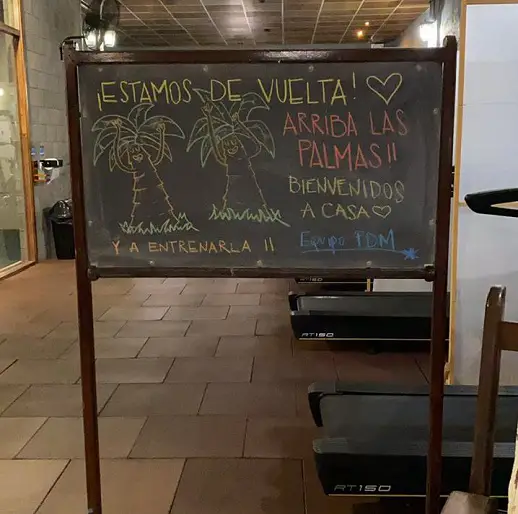 ¡ESTAMOS DE VUELTA! ♡
ARRIBA LAS
PALMAS!!
BIENVENIDOS
A CASA ♡
Y A ENTRENARLA !!
Equipo PDM
RT150
RT150